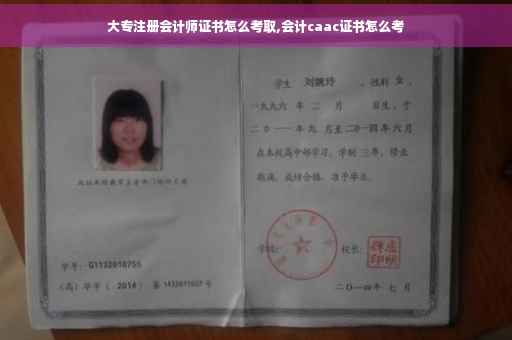 大专注册会计师证书怎么考取,会计caac证书怎么考
学生 刘婉玲 ，性别 女 ，
一九九六 年 二 月 日生，于
二〇一一 年 九 月至 二〇一四 年 六 月
在本校高中部学习，学制 三 年，修业
期满，成绩合格，准予毕业。
学号： G1132010755
学校： 校长：
（高）毕字（ 2014 ）第 1432011027 号
二〇一四年 七 月